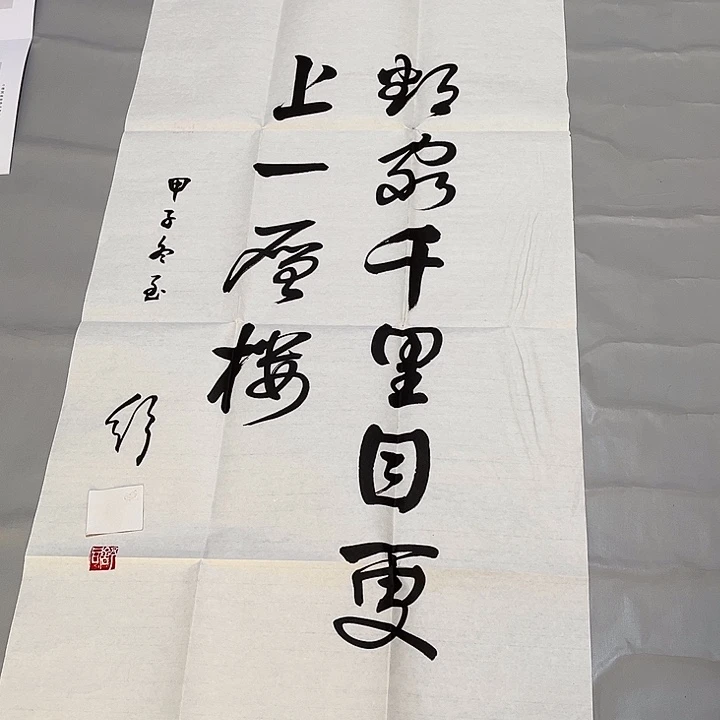 欲窮千里目更
上一層樓
甲子冬至
舒